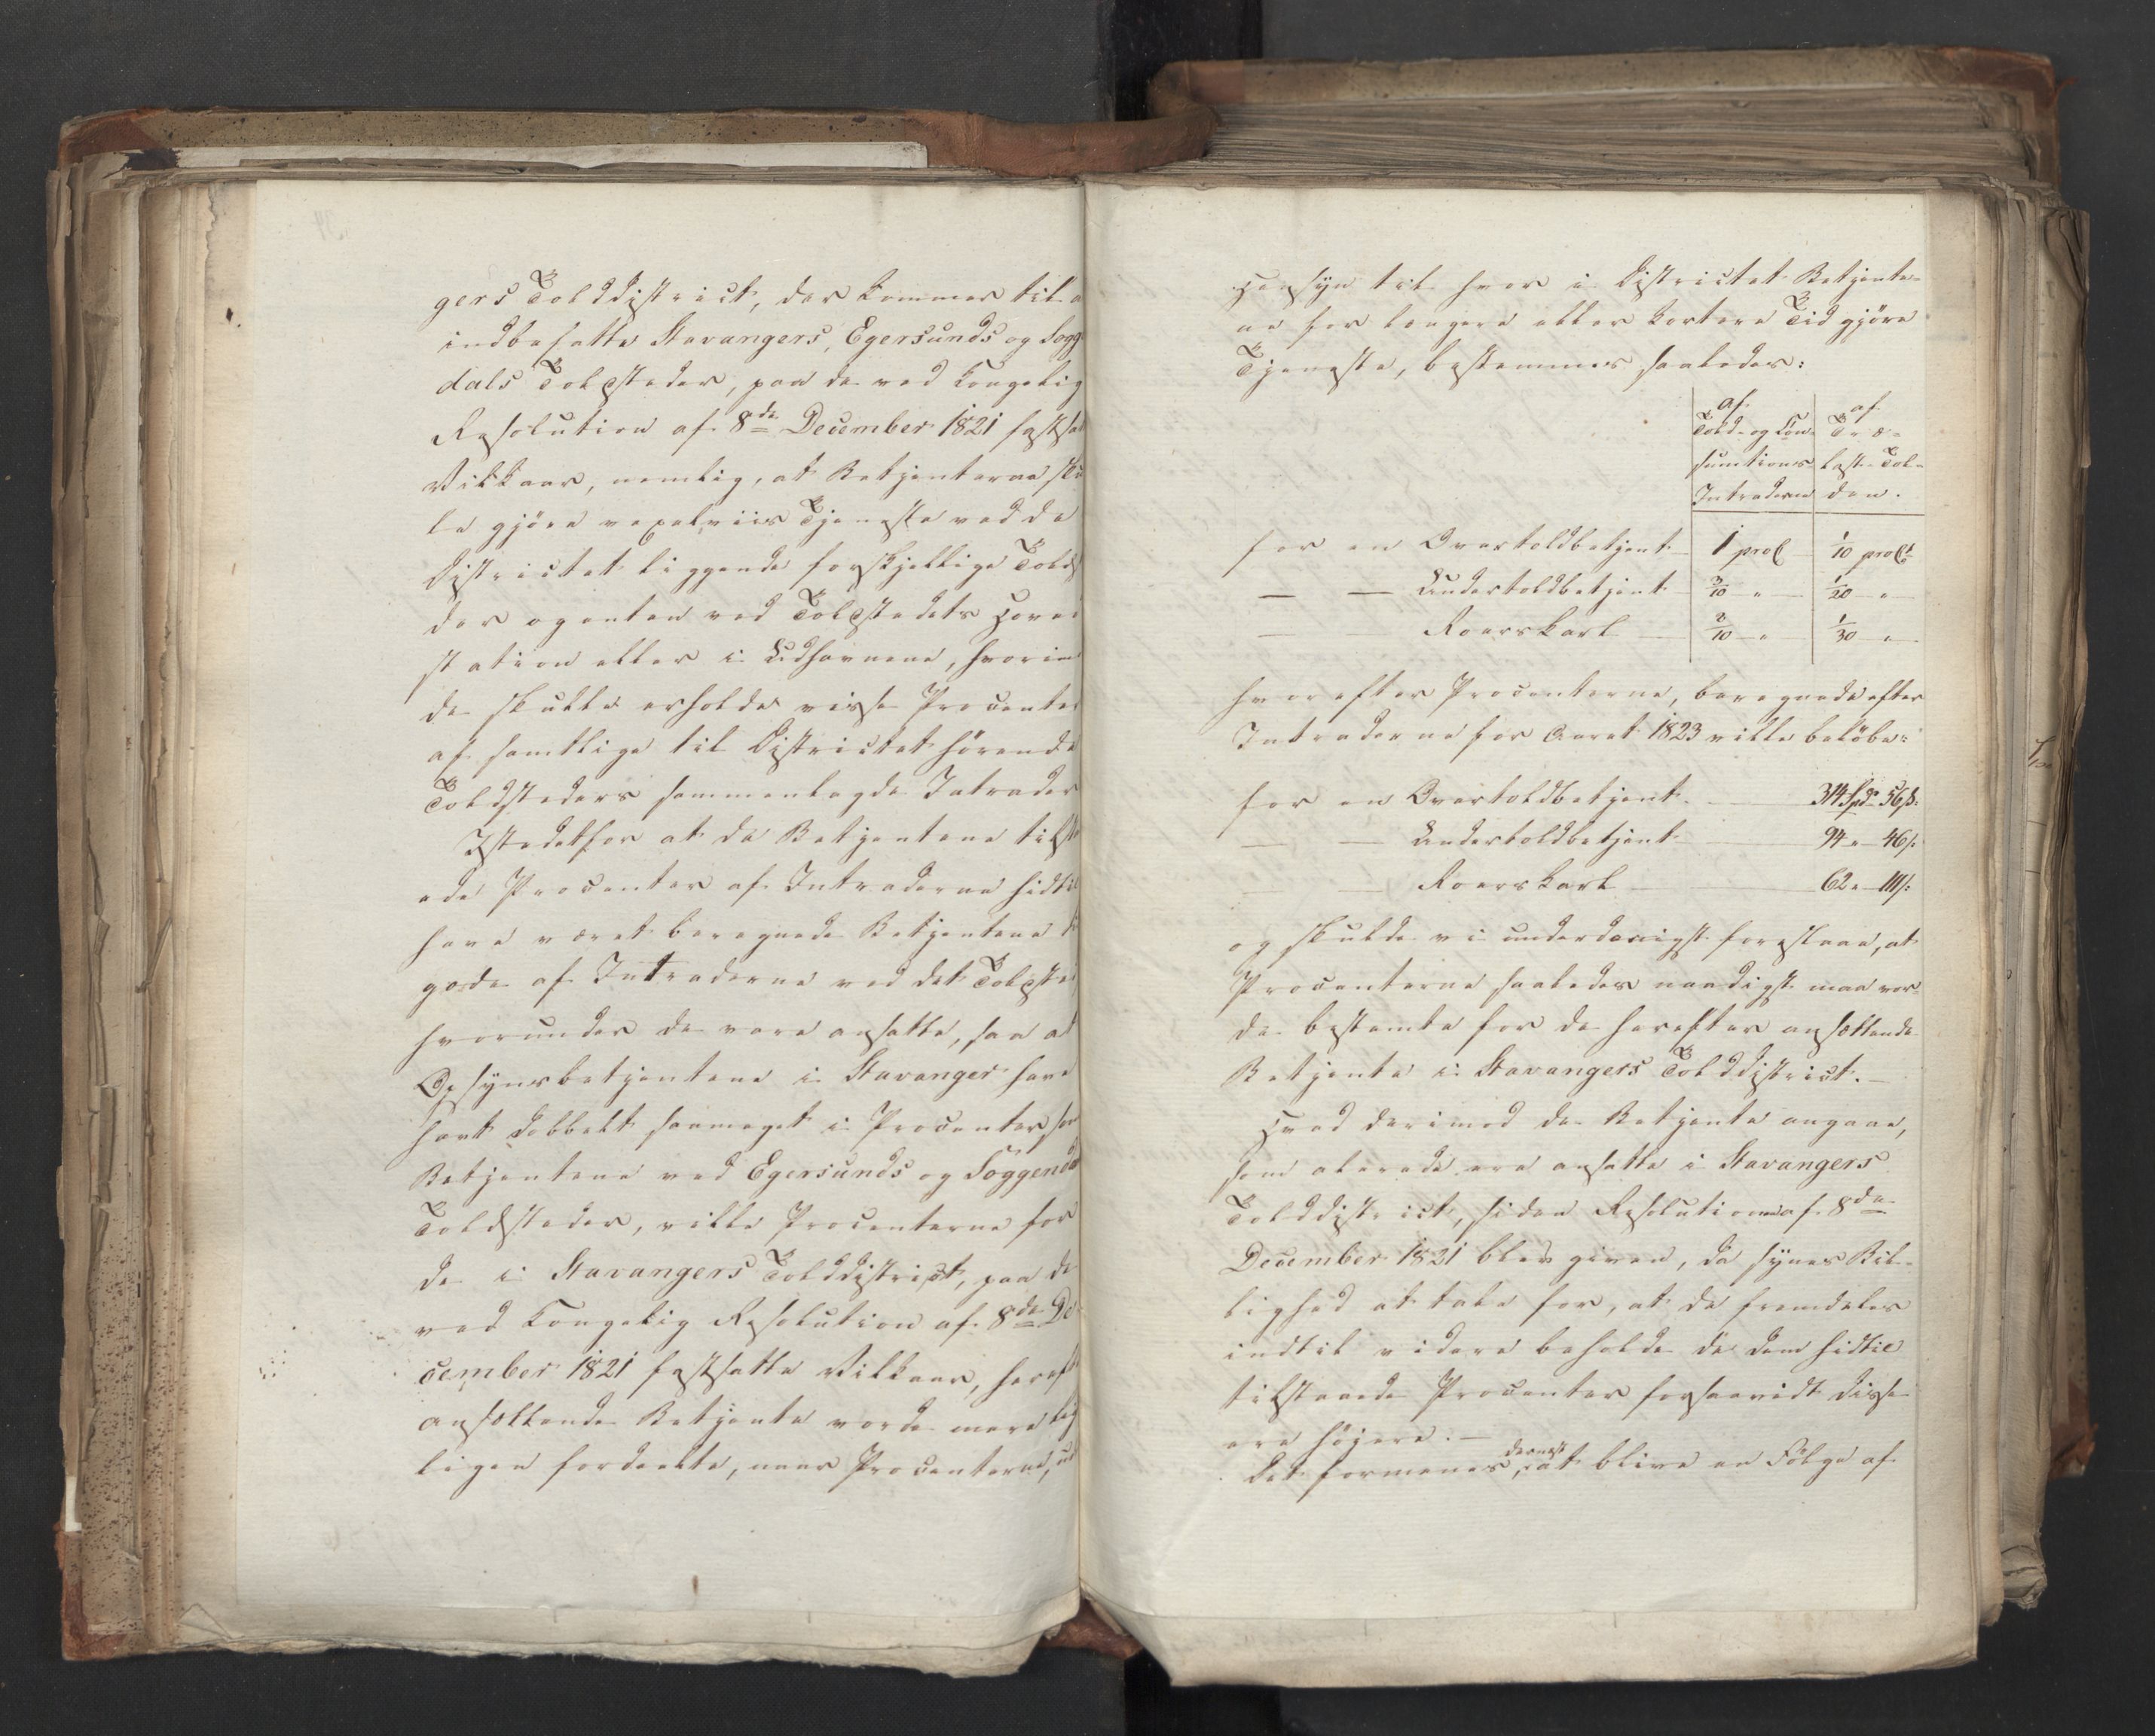 gers Tolddistrict, der kommer til a
indbefatte Stavangers, Egersunds og Sogg
dals Toldsteder, paa de ved Kongelig
Resolution af 8de December 1821 fastsat
Vilkaar, nemlig, at Betjenterne skul
le gjöre vexelviis Tjeneste ved de
Districtet liggende forskjellige Toldst
der og enten ved Toldstedets Hoved
station eller i Udhavnene, hvorim
de skulle erholde visse Procenter
af samtlige til Districtet hörende
Toldsteders sammenlagde Intrader
Istedetfor at de Betjentene tilst
ede Procenter af Intraderne hidtil
have været beregnede Betjentene til
gode af Intraderne ved det Toldsted
hvorunder de vare ansatte, saa at
Opsynsbetjentene i Stavanger have
havt dobbelt saameget i Procenter som
Betjentene ved Egersunds og Soggendal
Toldsteder, ville Procenterne for
de i Stavangers Tolddistrict, paa de
ved Kongelig Resolution af 8de De-
cember 1821 fastsatte Vilkaar, hereft
ansættende Betjente vorde mere lig
ligen fordeelte, naar Procenterne, ud
Hensyn til hvor i Districtet Betjente-
ne for længere eller kortere Tid gjöre
Tjeneste, bestemmes saaledes:
af Told- og Con-sumtions-Intraderne
af Træ-last-Tol-den.
for en Overtoldbetjent 1 proC 1/10 proCt
— — Undertoldbetjent 3/10 " 1/20 "
— — Roerskarl 2/10 " 1/30 "
hvorefter Procenterne, beregnede efter
Intraderne for Aaret 1823 ville belöbe:
for en Overtoldbetjent 314 Spdr 56 ß.
— — Undertoldbetjent 94 " 46 ß.
— — Roerskarl 62 " 111 ß:
og skulde vi underdanigst foreslaae, at
Procenterne saaledes naadigst maa vor-
de bestemte for de herefter ansættende
Betjente i Stavangers Tolddistrict.—
Hvad derimod de Betjente angaae,
som allerede ere ansatte i Stavangers
Tolddistrict, siden Resolutionen af 8de
December 1821 blev given, da synes Bil-
lighed at tale for, at de fremdeles
indtil videre beholde de dem hidtil
tilstaaede Procenter forsaavidt disse
ere höjere.—
Det formenes dernæst, at blive en Fölge af